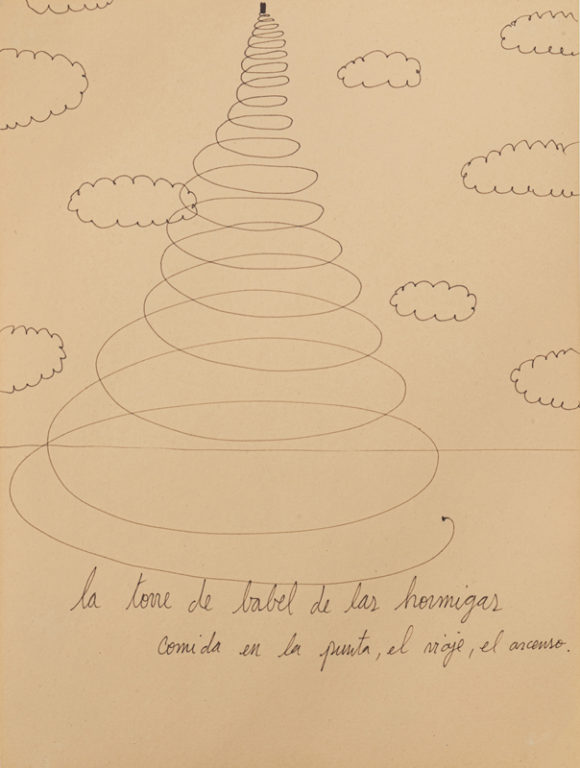 la torre de babel de las hormigas
comida en la punta, el viaje, el ascenso.